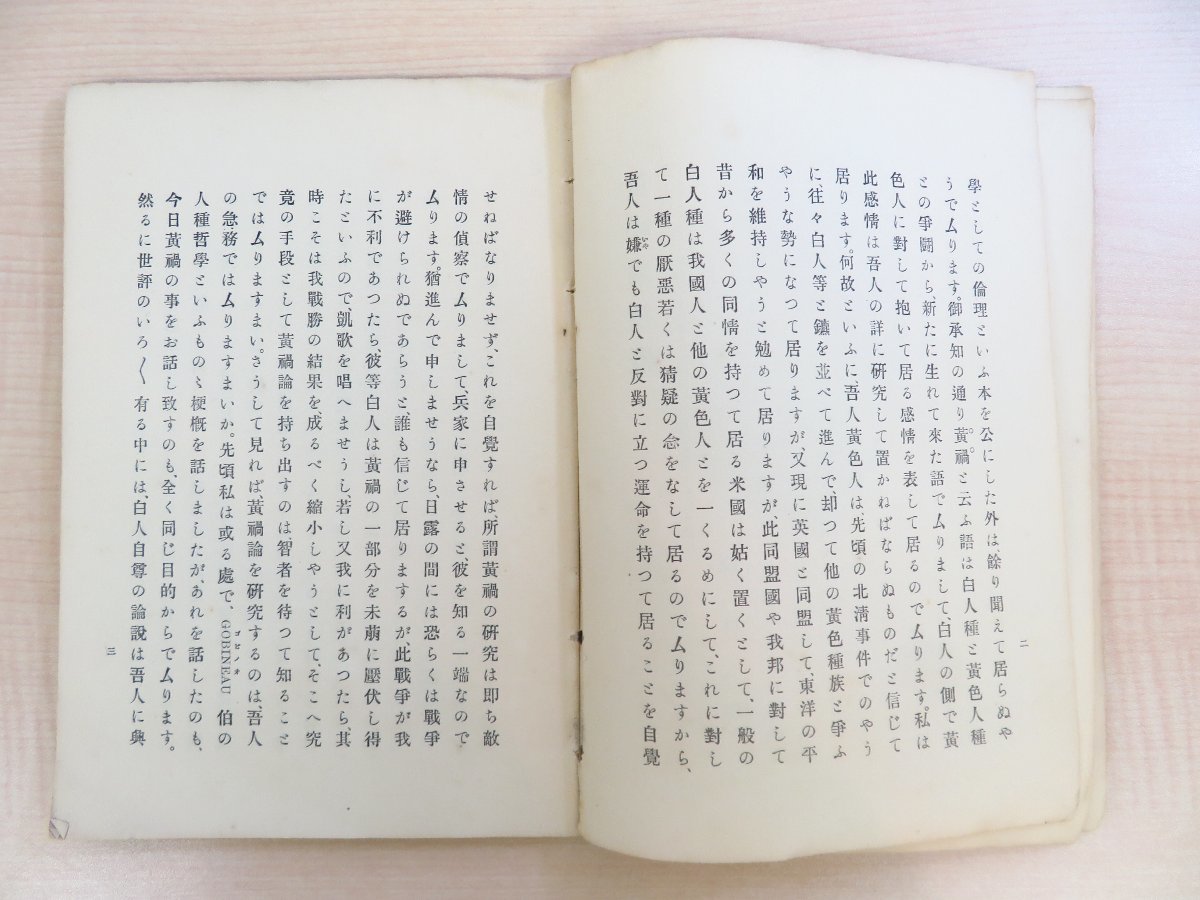 學としての倫理といふ本を公にした外は、餘り聞えて居らぬや
うでムります。御承知の通り黃禍と云ふ語は白人種と黃色人種
との爭鬪から、新たに生れて來た語でムりまして、白人の側で黃
色人に對して抱いて居る感情を表して居るのでムります。私は
此感情は吾人の詳に硏究して置かねばならぬものだと信じて
居ります。何故といふに、吾人黃色人は、先頃の北淸事件でのやう
に、往々白人等と鑣を並べて進んで、却つて他の黃色種族と爭ふ
やうな勢になつて居りますが、又現に英國と同盟して、東洋の平
和を維持しやうと勉めて居りますが、此同盟國や我邦に對して
昔から多くの同情を持つて居る米國は姑く置くとして、一般の
白人種は我國人と他の黃色人とを一くるめにして、これに對し
て一種の厭惡若くは猜疑の念をなして居るのでムりますから、
吾人は嫌でも白人と反對に立つ運命を持つて居ることを自覺
二
せねばなりませず、これを自覺すれば、所謂黃禍の硏究は即ち敵
情の偵察でムりまして、兵家に申させると、彼を知る一端なので
ムります。猶進んで申しませうなら、日露の間には恐らくは戰爭
が避けられぬであらうと、誰も信じて居りまするが、此戰爭が我
に不利であつたら、彼等白人は黃禍の一部分を未萠に壓伏し得
たといふので、凱歌を唱へませうし、若し又我に利があつたら、其
時こそは我戰勝の結果を、成るべく縮小しやうとして、そこへ究
竟の手段として黃禍論を持ち出すのは、智者を待つて知ること
ではムりますまい。さうして見れば、黃禍論を硏究するのは、吾人
の急務ではムりますまいか。先頃私は或る處で、GOBINEAU 伯の
人種哲學といふものゝ梗槪を話しましたが、あれを話したのも、
今日黃禍の事をお話し致すのも、全く同じ目的からでムります。
然るに世評のいろ〱有る中には、白人自尊の論說は吾人に與
三